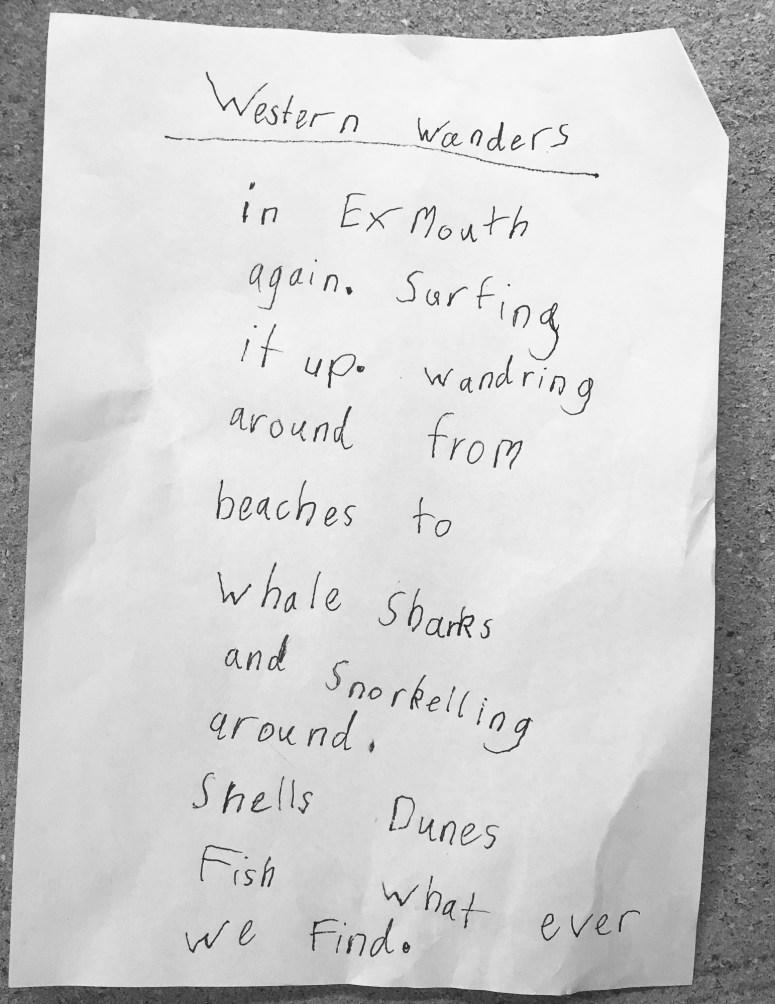 Western Wanders
in Exmouth
again. Surfing
it up. wandring
around from
beaches to
whale Sharks
and Snorkelling
around.
Shells Dunes
Fish what ever
we Find.